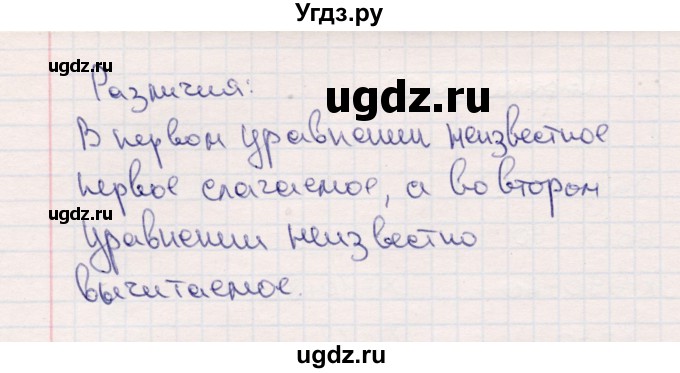 Угдз.ру
ugdz.ru
Различия:
ugdz.ru
В первом уравнении неизвестное
первое слагаемое, а во втором
ugdz.ru
уравнении неизвестно
вычитаемое.
ugdz.ru